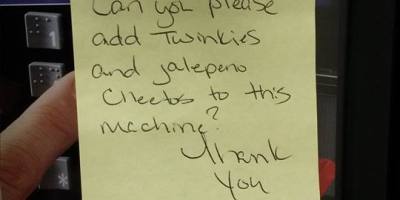 Can you please
add Twinkies
and jalepeno
Cheetos to this
machine?
Thank
you
1
*